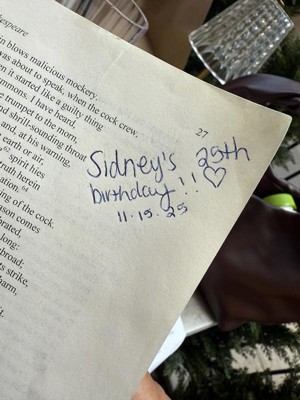 kespeare
27
in blows malicious mockery.
was about to speak, when the cock crew,
n it started like a guilty thing
mmons. I have heard,
e trumpet to the morn,
nd shrill-sounding throat
and, at his warning,
earth or air,
spirit hies
ruth herein
ation.64
ng of the cock.
ason comes
brated,
long:
broad;
ts strike,
harm,
t.
Sidney's 25th
birthday!! ♡
11.15.25